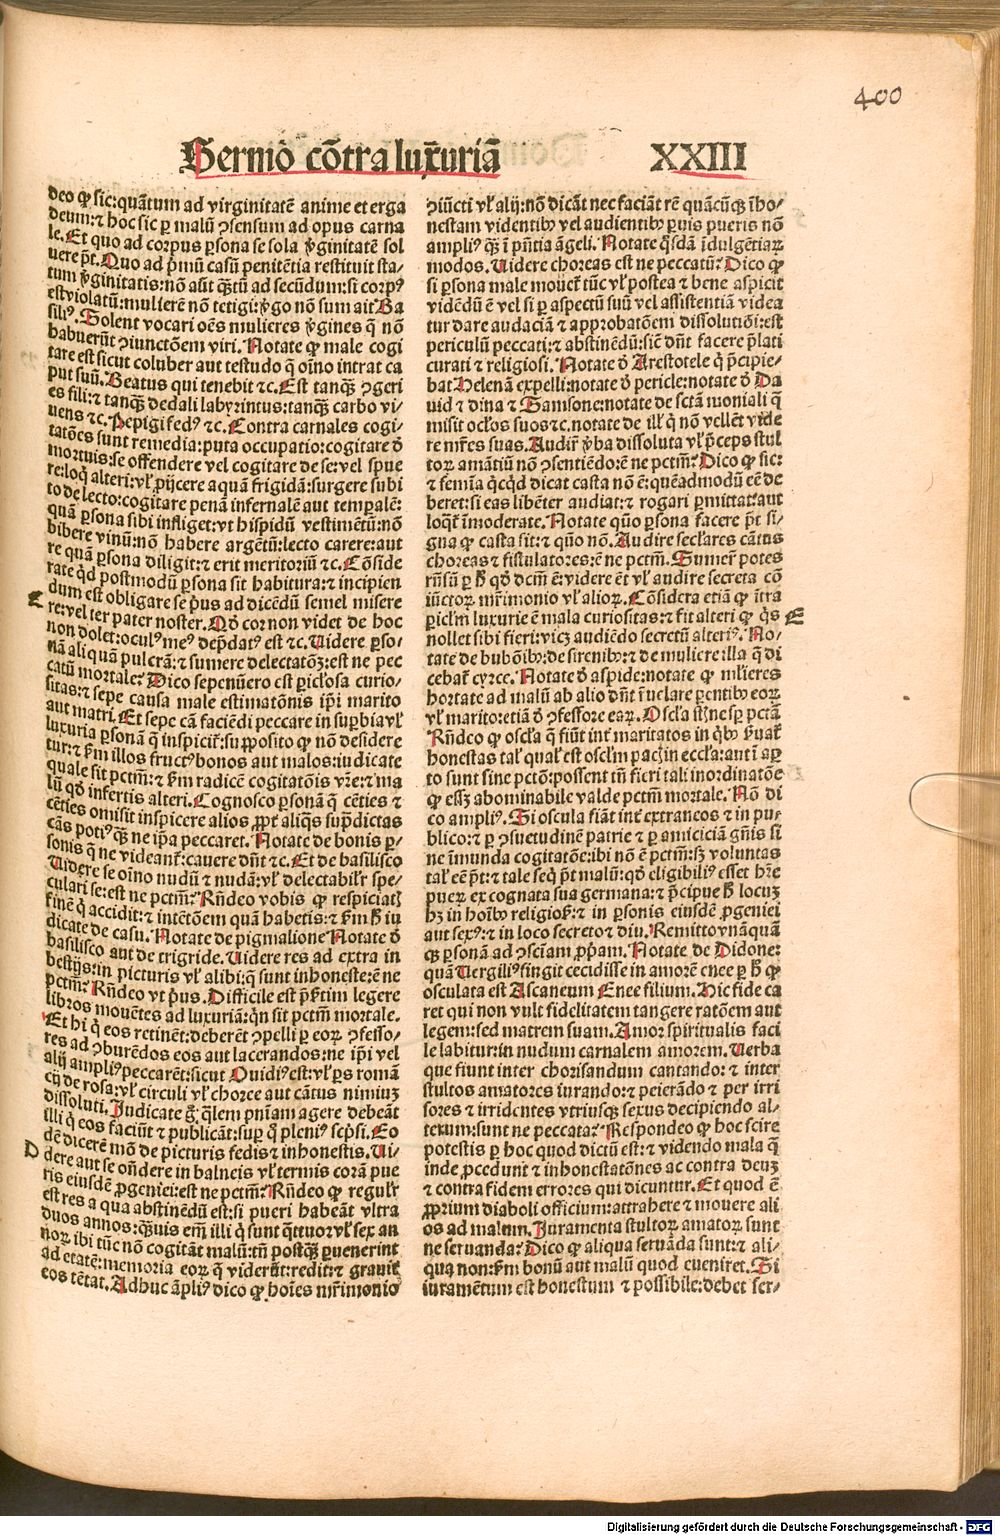 400
Sermo cõtra luxuriã XXIII
deo ꝙ sic: quãtum ad virginitatẽ anime et erga
deum: ⁊ hoc sic ꝑ malũ ↄsensum ad opus carna
le. Et quo ad corpus ꝑsona se sola ꝟginitatẽ sol
uere põt. Quo ad pͥmũ casũ penitẽtia restituit sta⸗
tum ꝟginitatis: nõ aũt qͣ̃tũ ad secũdum: si corpꝰ
est violatũ: mulierẽ nõ tetigi: ꝟgo nõ sum ait Ba
siliꝰ. Solent vocari oẽs mulieres ꝟgines q̃ nõ
habuerũt ↄiunctõem viri. Notate ꝙ male cogi
tare est sicut coluber aut testudo q̃ oĩno intrat ca
put suũ. Beatus qui tenebit ⁊c. Est tanqͣ̃ ↄgeri
es fili: ⁊ tanqͣ̃ dedali labyrintus: tanqͣ̃ carbo vi⸗
uens ⁊c. Pepigi fedꝰ ⁊c. Contra carnales cogi⸗
tatões sunt remedia: puta occupatio: cogitare ð
mortuis: se offendere vel cogitare de se: vel spue
re: loqͥ alteri: vl̓ ꝓijcere aquã frigidã: surgere subi
to de lecto: cogitare penã infernalẽ aut tempalẽ:
quã ꝑsona sibi infliget: vt hispidũ vestimẽtũ: nõ
bibere vinũ: nõ habere argẽtũ: lecto carere: aut
re quã ꝑsona diligit: ⁊ erit meritoriũ ⁊c. Cõside
rate qͥd postmodũ ꝑsona sit habitura: ⁊ incipien
dum est obligare se pͥus ad dicẽdũ semel misere
E re: vel ter pater noster. Qð cor non videt de hoc
non dolet: oculꝰ meꝰ depͥdatꝰ est ⁊c. Uidere ꝑso⸗
nã aliquã pulcrã: ⁊ sumere delectatõꝫ: est ne pec
catũ mortale? Dico sepenũero est ꝑicl̓osa curio⸗
sitas: ⁊ sepe causa male estimatõnis ip̃i marito
aut matri. Et sepe cã faciẽdi peccare in suꝑbia vl̓
luxuria ꝑsonã q̃ inspicit̃: supposito ꝙ nõ desidere
tur: ⁊ ẜm illos fructꝰ bonos aut malos: iudicate
quale sit pctm̃: ⁊ ẜm radicẽ cogitatõis vr̃e: ⁊ ma
lũ qð infertis alteri. Cognosco ꝑsonã q̃ cẽties ⁊
cẽties omisit inspicere alios, ꝓpt̃ aliqͣs supͥdictas
cãs potiꝰ qͣ̃ ne ip̃a peccaret. Notate de bonis ꝑ⸗
sonis q̃ ne videant̃: cauere dñt ⁊c. Et de basilisco
Uidere se oĩno nudũ ⁊ nudã: vl̓ delectabilr̃ spe⸗
culari se: est ne pctm̃? Rñdeo vobis ꝙ respiciatꝭ
finẽ qͥ accidit: ⁊ intẽtõem quã habetis: ⁊ ẜm ħ iu
dicate de casu. Notate de pigmalione Notate ð
basilisco aut de trigride. Uidere res ad extra in
bestijs: in picturis vl̓ alibi: q̃ sunt inhoneste: ẽ ne
pctm̃? Rñdeo vt pͥus. Difficile est pͥfctim legere
libros mouẽtes ad luxuriã: qͥn sit pctm̃ mortale.
Et hi qͥ eos retinẽt: deberẽt ↄpelli ꝑ eoꝝ ↄfesso⸗
res ad ↄburẽdos eos aut lacerandos: ne ip̃i vel
alij ampliꝰ peccarẽt: sicut Ouidiꝰ est: vl̓ ꝑs romã
cij de rosa: vl̓ circuli vl̓ choree aut cãtus nimiuꝫ
dissoluti. Judicate g̃ qͣlem pnĩam agere debeãt
illi qͥ eos faciũt ⁊ publicãt: suꝑ qͦ pleniꝰ scpͥsi. Eo
dẽ dicerẽ mõ de picturis fedis ⁊ inhonestis. Ui⸗
D dere aut se oñdere in balneis vl̓ termis corã pue
ris eiusdẽ ꝓgeniei: est ne pctm̃? Rñdeo ꝙ regulr̃
est res a qua abstinẽdũ est: si pueri habeãt vltra
duos annos: qͣ̃uis em̃ illi qͥ sunt qͣttuor vl̓ sex an
noꝝ ibi tũc nõ cogitãt malũ: tñ postqͣ̃ ꝑuenerint
ad etatẽ: memoria eoꝝ q̃ viderũt: redit: ⁊ grauit̃
eos tẽtat. Adhuc ãpliꝰ dico ꝙ hoĩes mr̃imonio
ↄiũcti vl̓ alij: nõ dicãt nec faciãt rẽ quãcũqꝫ ĩho⸗
nestam videntibꝰ vel audientibꝰ ꝑuis pueris nõ
ampliꝰ qͣ̃ ĩ pñtia ãgeli. Notate qͣsdã ĩdulgẽtiaꝝ
modos. Uidere choreas est ne peccatũ? Dico ꝙ
si ꝑsona male mouet̃ tũc vl̓ postea ⁊ bene aspicit
vidẽdũ ẽ vel si ꝑ aspectũ suũ vel assistentiã videa
tur dare audaciã ⁊ approbatõem dissolutiõi: est
periculũ peccati: ⁊ abstinẽdũ: sic dñt facere pͥlati
curati ⁊ religiosi. Notate ð Arestotele qͥ pͥcipie⸗
bat Helenã expelli: notate ð pericle: notate ð Da
uid ⁊ dina ⁊ Samsone: notate de sctã moniali q̃
misit ocl̓os suos ⁊c. notate de ill̓ qͥ nõ vellẽt vide
re mr̃es suas. Audir̃ ꝟba dissoluta vl̓ pͥceps stul
toꝝ amãtiũ nõ ↄsentiẽdo: ẽ ne pctm̃? Dico ꝙ sic:
⁊ femĩa qͥcqͥd dicat casta nõ ẽ: quẽadmodũ eẽ de
beret: si eas libẽter audiat: ⁊ rogari ꝑmittat: aut
loqͣt̃ ĩmoderate. Notate quõ ꝑsona facere põt si⸗
gna ꝙ casta sit: ⁊ quõ nõ. Audire secl̓ares cãtus
choreas ⁊ fistulatores: ẽ ne pctm̃. Sumer̃ potes
rñsũ ꝑ ħ qð dcm̃ ẽ: videre ẽt vl̓ audire secreta cõ
iũctoꝝ mr̃imonio vl̓ alioꝝ. Cõsidera etiã ꝙ ĩtra
ꝑiclm̃ luxurie ẽ mala curiositas: ⁊ fit alteri ꝙ qͥs E
nollet sibi fieri: vicꝫ audiẽdo secretũ alteriꝰ. No⸗
tate de bubõibꝰ: de sirenibꝰ: ⁊ de muliere illa q̃ di
cebat̃ cyrce. Notate ð aspide: notate ꝙ ml̓ieres
hortate ad malũ ab alio dñt ĩ uelare ꝑentibꝰ eoꝝ
vl̓ marito: etiã ð ↄfessore eaꝝ. Oscl̓a st̃ ne sp̃ pctã
Rñdeo ꝙ oscl̓a q̃ fiũt int̃ maritatos in qͥbꝰ ẜuat̃
honestas tal̓ qual̓ est oscl̓m pacꝭ in eccl̓a: aut ĩ aꝑ
to sunt sine pctõ: possent tñ fieri tali inordinatõe
ꝙ esꝫ abominabile valde pctm̃ mortale. Nõ di
co ampliꝰ. Si oscula fiãt int̃ extraneos ⁊ in pu⸗
blico: ⁊ ꝑ ↄsuetudinẽ patrie ⁊ ꝑ amiciciã gñis si
ne ĩmunda cogitatõe: ibi nõ ẽ pctm̃: sꝫ voluntas
tal̓ eẽ põt: ⁊ tale seqͥ põt malũ: qð eligibiliꝰ esset hr̃e
pueꝝ ex cognata sua germana: ⁊ pͥcipue ħ locuꝫ
hꝫ in hoĩbꝰ religiosͥ: ⁊ in ꝑsonis eiusdẽ ꝓgeniei
aut sexꝰ: ⁊ in loco secreto ⁊ diu. Remitto vnãquã
qꝫ ꝑsonã ad ↄsciam ꝓpͥam. Notate de Didone:
quã Uergiliꝰ fingit cecidisse in amorẽ enee ꝑ ħ ꝙ
osculata est Ascaneum Enee filium. Hic fide ca
ret qui non vult fidelitatem tangere ratõem aut
legem: sed matrem suam. Amor spiritualis faci
le labitur: in nudum carnalem amorem. Uerba
que fiunt inter chorisandum cantando: ⁊ inter
stultos amatores iurando: ⁊ peierãdo ⁊ per irri
sores ⁊ irridentes vtriusqꝫ sexus decipiendo al⸗
terum: sunt ne peccata? Respondeo ꝙ hoc scire
potestis ꝑ hoc quod dictũ est: ⁊ videndo mala q̃
inde ꝓcedunt ⁊ inhonestatões ac contra deuꝫ
⁊ contra fidem errores qui dicuntur. Et quod ẽ
ꝓprium diaboli officium: attrahere ⁊ mouere ali
os ad malum. Juramenta stultoꝝ amatoꝝ sunt
ne seruanda? Dico ꝙ aliqua seruãda sunt: ⁊ ali⸗
qua non: ẜm bonũ aut malũ quod eueniret. Si
iuramẽtum est honestum ⁊ possibile: debet ser⸗
Digitalisierung gefördert durch die Deutsche Forschungsgemeinschaft - DFG